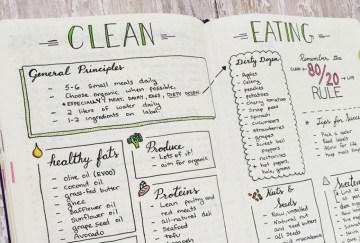 CLEAN
General Principles
- 5-6 small meals daily
- Choose organic when possible,
*ESPECIALLY MEAT, DAIRY, EGGS, DIRTY DOZEN
- 2 liters of water daily
- 1-2 ingredients on label
healthy fats
- olive oil (EVOO)
- coconut oil
- grass-fed butter
- ghee
- safflower oil
- sunflower oil
- grape seed oil
- Avocado
Produce
- Lots of it!
- aim for organic
Proteins
- Lean poultry and
red meats
- all-natural deli
- Seafood
- Tofu
EATING
Dirty Dozen
- Apples
- Celery
- peaches
- potatoes
- cherry tomatoes
- Snap peas
- Spinach
- cucumbers
- strawberries
- grapes
- sweet bell
peppers
- nectarines
- hot peppers
Remember the
CLEAN 80/20 LIFE
RULE
Tips for
Nuts &
Seeds
- Raw, unsalted
- Natural nut
and seed butters
- All